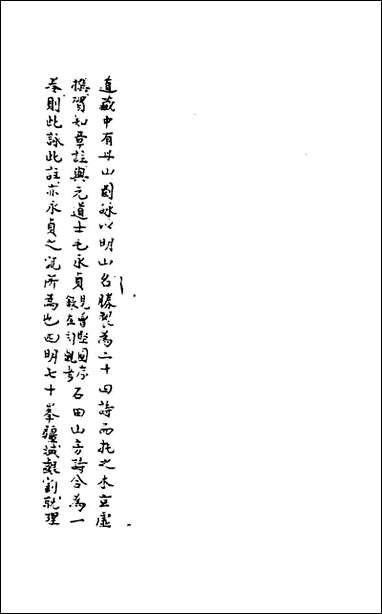 道藏中有丹山圖詠以明山名勝製為二十四詩而托之木玄虛
撰賀知章註與元道士毛永貞見曾堅圖序石田山房詩合為一
卷則此詠此註亦永貞之所為也四明七十峯疆域割就理